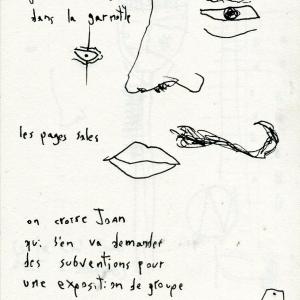 dans la garnotte
les pages sales
on croise JOAN
qui s'en va demander
des subventions pour
une exposition de groupe